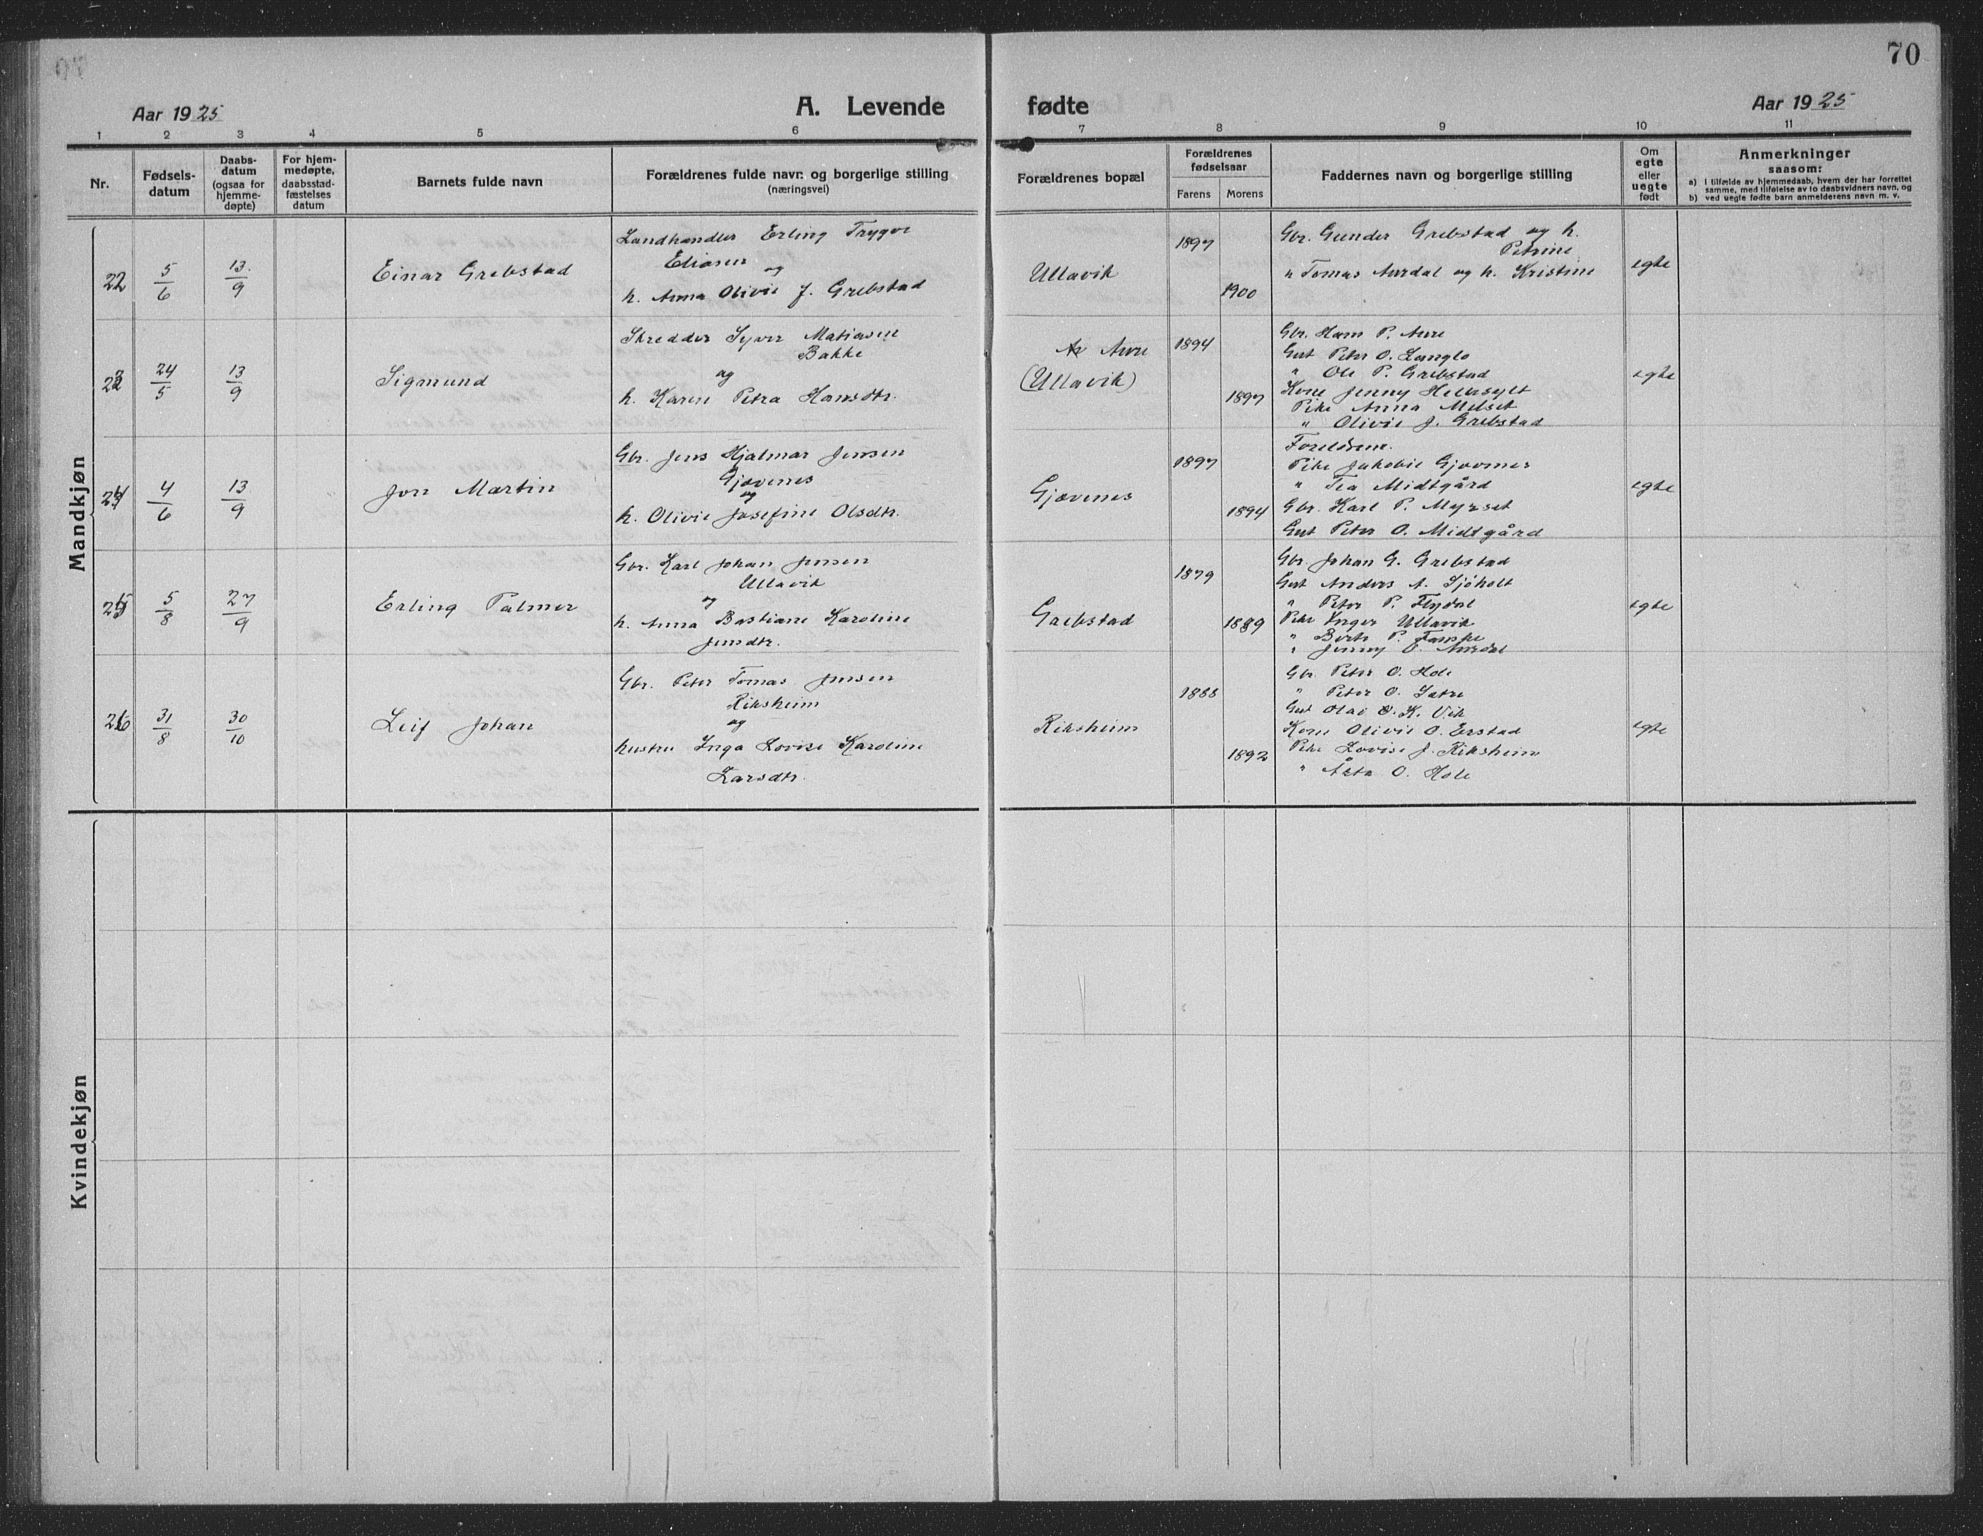 70
Aar 1925
A. Levende
fødte
Aar 1925
1 2 3 4 5 6 7 8 9 10 11
Nr.
Fødsels-
datum
Daabs-
datum
(ogsaa for
hjemme-
døpte)
For hjem-
medøpte,
daabsstad-
fæstelses
datum
Barnets fulde navn
Forældrenes fulde navn og borgerlige stilling
(næringsvei)
Forældrenes bopæl
Forældrenes
fødselsaar
Farens Morens
Faddernes navn og borgerlige stilling
Om
egte
eller
uegte
født
Anmerkninger
saasom:
a) i tilfælde av hjemmedaab, hvem der har forrettet
samme, med tilføielse av to daabsvidners navn, og
b) ved uegte fødte barn anmelderens navn m. v.
Mandkjøn
22
5/6
13/9
Einar Grebstad
Landhandler Erling Trygve
Eliasen
og
h. Anna Olivie J. Grebstad
Ullavik
1897
1900
Gbr. Gunder Grebstad og h.
Petrine
" Tomas Aurdal og h. Kristine
egte
23
24/5
13/9
Sigmund
Skredder Syver Matiasen
Bakke
og
h. Karen Petra Hansdtr.
Aure
(Ullavik)
1894
1897
Gbr. Hans P. Aure
Gut Peter O. Langlo
" Ole P. Grebstad
Kone Jenny Hellesylt
Pike Anna Melset
" Olivie J. Grebstad
egte
24
4/6
13/9
Jon Martin
Gbr. Jens Hjalmar Jensen
Gjævenes
og
h. Olivie Josefine Olsdtr.
Gjævenes
1897
1894
Foreldrene.
Pike Jakobie Gjævenes
" Tea Midtgård
Gbr. Karl P. Myrset
Gut Peter O. Midtgård
egte
25
5/8
27/9
Erling Palmer
Gbr. Karl Johan Jensen
Ullavik
og
h. Anna Bastiane Karoline
Jensdtr.
Grebstad
1879
1889
Gbr. Johan G. Grebstad
Gut Anders A. Sjøholt
" Peter P. Flydal
Pike Inger Ullavik
" Berte P.
" Jenny E. Aurdal
egte
26
31/8
30/10
Leif Johan
Gbr. Peter Tomas Jensen
Riksheim
og
hustru Inga Lovise Karoline
Larsdtr.
Riksheim
1888
1892
Gbr. Peter O. Hole
" Peter O. Satre
Gut Olai K. Vik
Kone Olivie O. Erstad
Pike Lovise J. Riksheim
" Åsta O. Hole
egte
Kvindekjøn